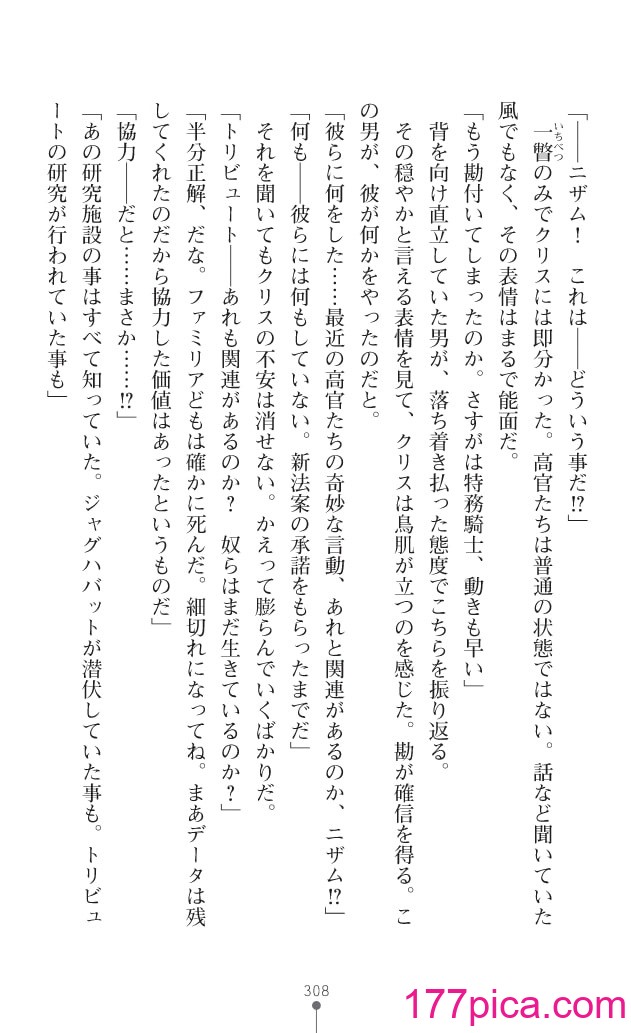 「――ニザム！　これは――どういう事だ!?」
　一瞥のみでクリスには即分かった。高官たちは普通の状態ではない。話など聞いていた
いちべつ
風でもなく、その表情はまるで能面だ。
「もう勘付いてしまったのか。さすがは特務騎士、動きも早い」
　背を向け直立していた男が、落ち着き払った態度でこちらを振り返る。
　その穏やかと言える表情を見て、クリスは鳥肌が立つのを感じた。勘が確信を得る。こ
の男が、彼が何かをやったのだと。
「彼らに何をした……最近の高官たちの奇妙な言動、あれと関連があるのか、ニザム!?」
「何も――彼らには何もしていない。新法案の承諾をもらったまでだ」
　それを聞いてもクリスの不安は消せない。かえって膨らんでいくばかりだ。
「トリビュート――あれも関連があるのか？　奴らはまだ生きているのか？」
「半分正解、だな。ファミリアどもは確かに死んだ。細切れになってね。まあデータは残
してくれたのだから協力した価値はあったというものだ」
「協力――だと……まさか……!?」
「あの研究施設の事はすべて知っていた。ジャグハバットが潜伏していた事も。トリビュ
ートの研究が行われていた事も」
308
177pica.com